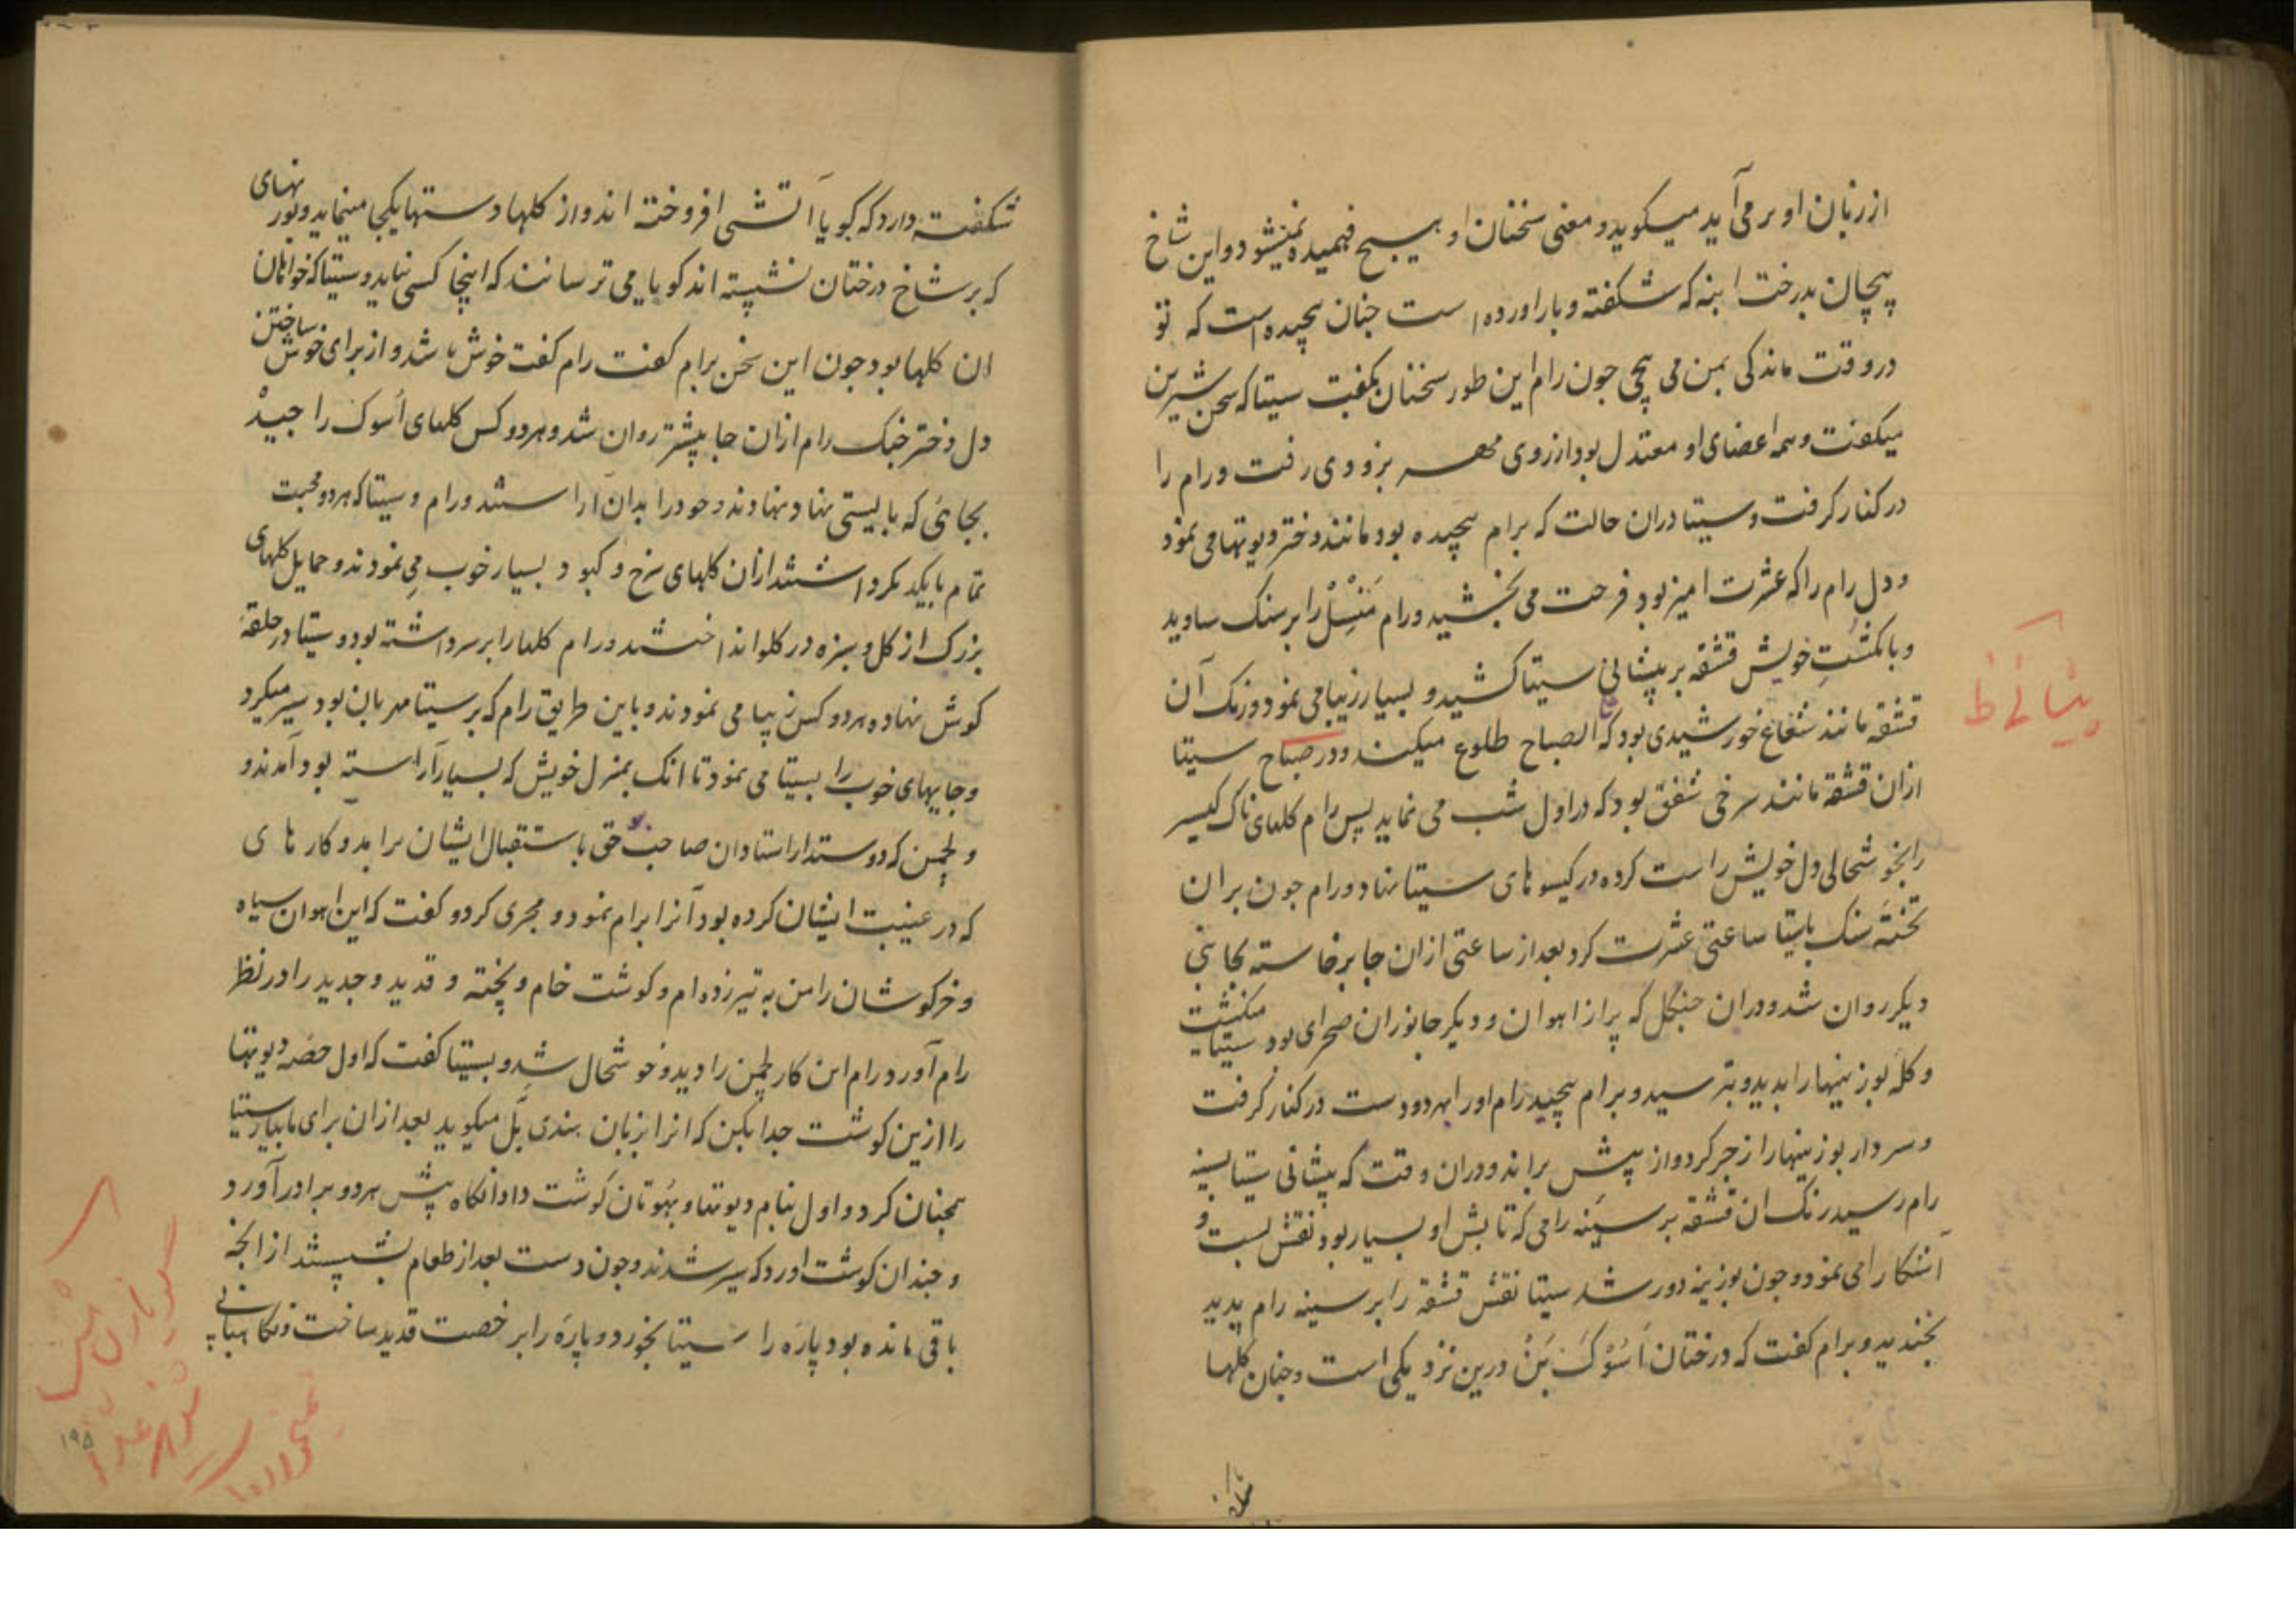 از زبان او بر می آید میکوید و معنی سخنان او هیچ فهمیده نمیشود و این شاخ
پیچان بدرخت انبه که شکفته و بار اورده است جنان پیچیده است که تو
در وقت ماندکی بمن می پیچی جون رام این طور سخنان بکفت سیتا که سخن شیرین
میکفت و همه اعضای او معتدل بود از روی مهر بزودی رفت و رام را
در کنار کرفت و سیتا دران حالت که برام پیچیده بود مانند دختر دیوتها می نمود
و دل رام را که عشرت امیز بود فرحت می بخشید و رام منسل را بر سنک ساوید
و بانکشت خویش قشقه بر پیشانی سیتا کشید و بسیار زیبا می نمود و رنک آن
قشقه مانند شعاع خورشیدی بود که الصباح طلوع میکند و در صباح سیتا
ازان قشقه مانند سرخی شفق بود که در اول شب می نماید پس رام کلهای ناک کیسر
را بخوشحالی دل خویش راست کرده در کیسوهای سیتا نهاد و رام جون بران
تختهٔ سنک باسیتا ساعتی عشرت کرد بعد از ساعتی ازان جا برخاسته بجانبی
دیکر روان شد و دران جنکل که پر از اهوان و دیکر جانوران صحرای بود سیتا میکشت
و کلهٔ بوزینها را بدید و بترسید و برام پیچید رام او را بهر دو دست در کنار کرفت
و سردار بوزینها را زجر کرد و از پیش براند و دران وقت که پیشانی سیتا بسینه
رام رسید رنک ان قشقه بر سینه رامی که تابش او بسیار بود نقش بست و
آشکارا می نمود و جون بوزینه دور شد سیتا نقش قشقه را بر سینه رام بدید
بخندید و برام کفت که درختان اَسُوْکَ بَنْ درین نزدیکی است و جنان کلها
پیشانے ط
شکفته دارد که کویا آتشی افروخته اند و از کلها دستها یکجا مینماید و بوزنهای
که بر شاخ درختان نشسته اند کویا می ترسانند که اینجا کسی نیاید و سیتا که خواهان
ان کلها بود جون این سخن برام کفت رام کفت خوش باشد و از برای خوش ساختن
دل دختر جنک رام ازان جا پیشتر روان شد و هر دو کس کلهای اُسوک را جیده
بجائی که بایستی نهاد نهادند و خود را بدان آراستند و رام و سیتا که هر دو محبت
تمام بایکدیکر داشتند ازان کلهای سرخ و کبود بسیار خوب می نمودند و حمایل کلهای
بزرک از کل و سبزه در کلو انداختند و رام کلها را بر سر داشته بود و سیتا در حلقهٔ
کوش نهاده هر دو کس زیبا می نمودند و باین طریق رام که بر سیتا مهربان بود سیر میکرد
و جایهای خوب را بسیتا می نمود تا انک بمنزل خویش که بسیار آراسته بود آمدند و
و لچمن که دوستدار استادان صاحب حق باستقبال ایشان برامد و کارهای
که در غیبت ایشان کرده بود آنرا برام نمود و مجری کرد و کفت که این اهوان سیاه
و خرکوشان را من به تیر زده ام و کوشت خام و پخته و قدید و جدید را در نظر
رام آورد رام این کار لچمن را دید و خوشحال شد و بسیتا کفت که اول حصهٔ دیوتها
را ازین کوشت جدا بکن که انرا بزبان هندی بَل میکویند بعد ازان برای ما بیار سیتا
همجنان کرد و اول بنام دیوتها و بهوتان کوشت داد آنکاه پیش هر دو برادر آورد
و جندان کوشت اورد که سیر شدند و جون دست بعد از طعام بشستند از انجه
باقی مانده بود پارهٔ را سیتا بخورد و پارهٔ را بر خصت قدید ساخت و نکاهبانی
۱۹۵